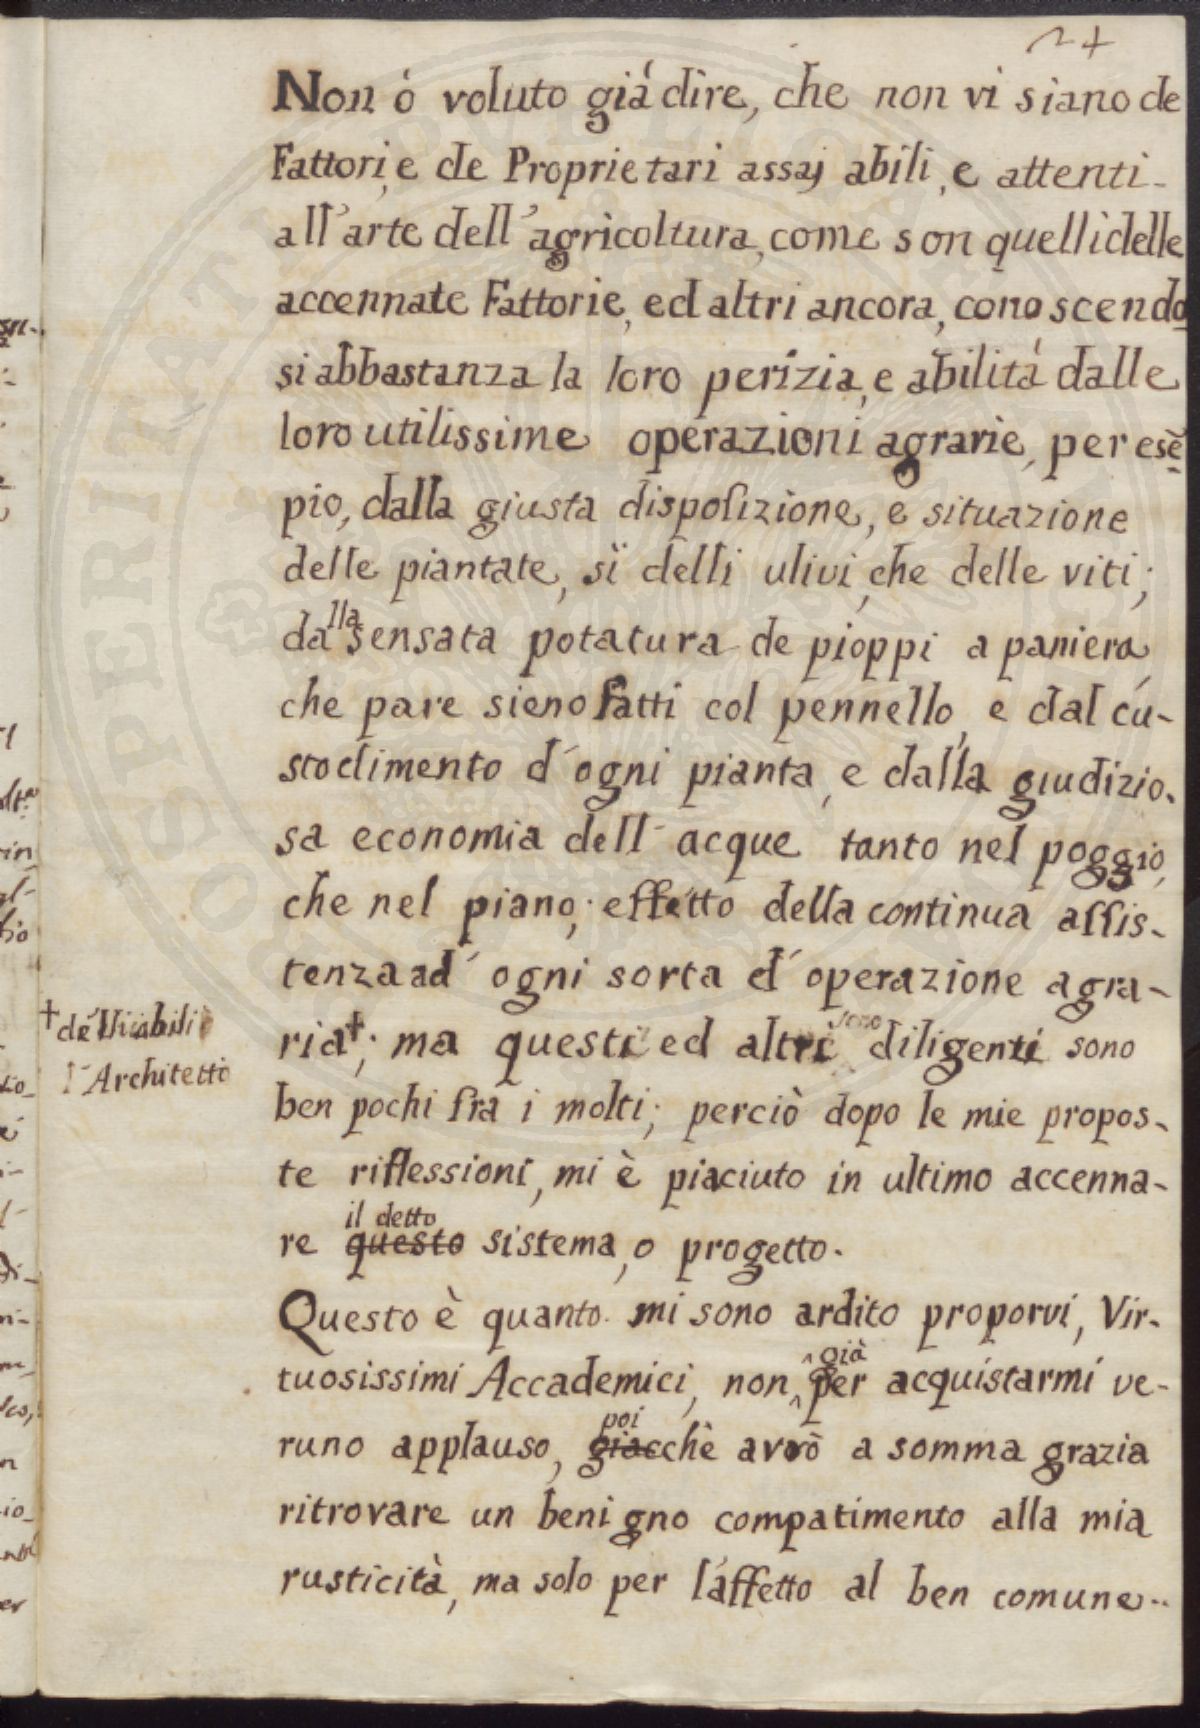 24
Non ò voluto già dire, che non vi siano de
Fattori, e de Proprietari assaj abili, e attenti
all'arte dell'agricoltura, come son quelli delle
accennate Fattorie, ed altri ancora, conoscendo
si abbastanza la loro perizia, e abilità dalle
loro utilissime operazioni agrarie, per esẽ
pio, dalla giusta disposizione, e situazione
delle piantate, sì delli ulivi, che delle viti;
dalla sensata potatura de pioppi a paniera,
che pare sieno fatti col pennello, e dal cu-
stodimento d'ogni pianta, e dalla giudizio-
sa economia dell'acque tanto nel poggio,
che nel piano; effetto della continua assis-
tenza ad'ogni sorta d'operazione agra-
ria†; ma questi ed altri diligenti sono
†de
l'Architetto
ben pochi fra i molti; perciò dopo le mie propos-
te riflessioni, mi è piaciuto in ultimo accenna-
il detto
re questo sistema, o progetto.
Questo è quanto mi sono ardito proporvi, Vir-
già
tuosissimi Accademici, non per acquistarmi ve-
poi
runo applauso, giacchè avrò a somma grazia
ritrovare un benigno compatimento alla mia
rusticità, ma solo per l'affetto al ben comune..